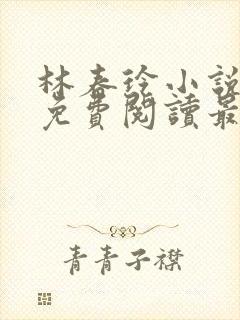 林春徐小說
免費閱讀最
青青子襟